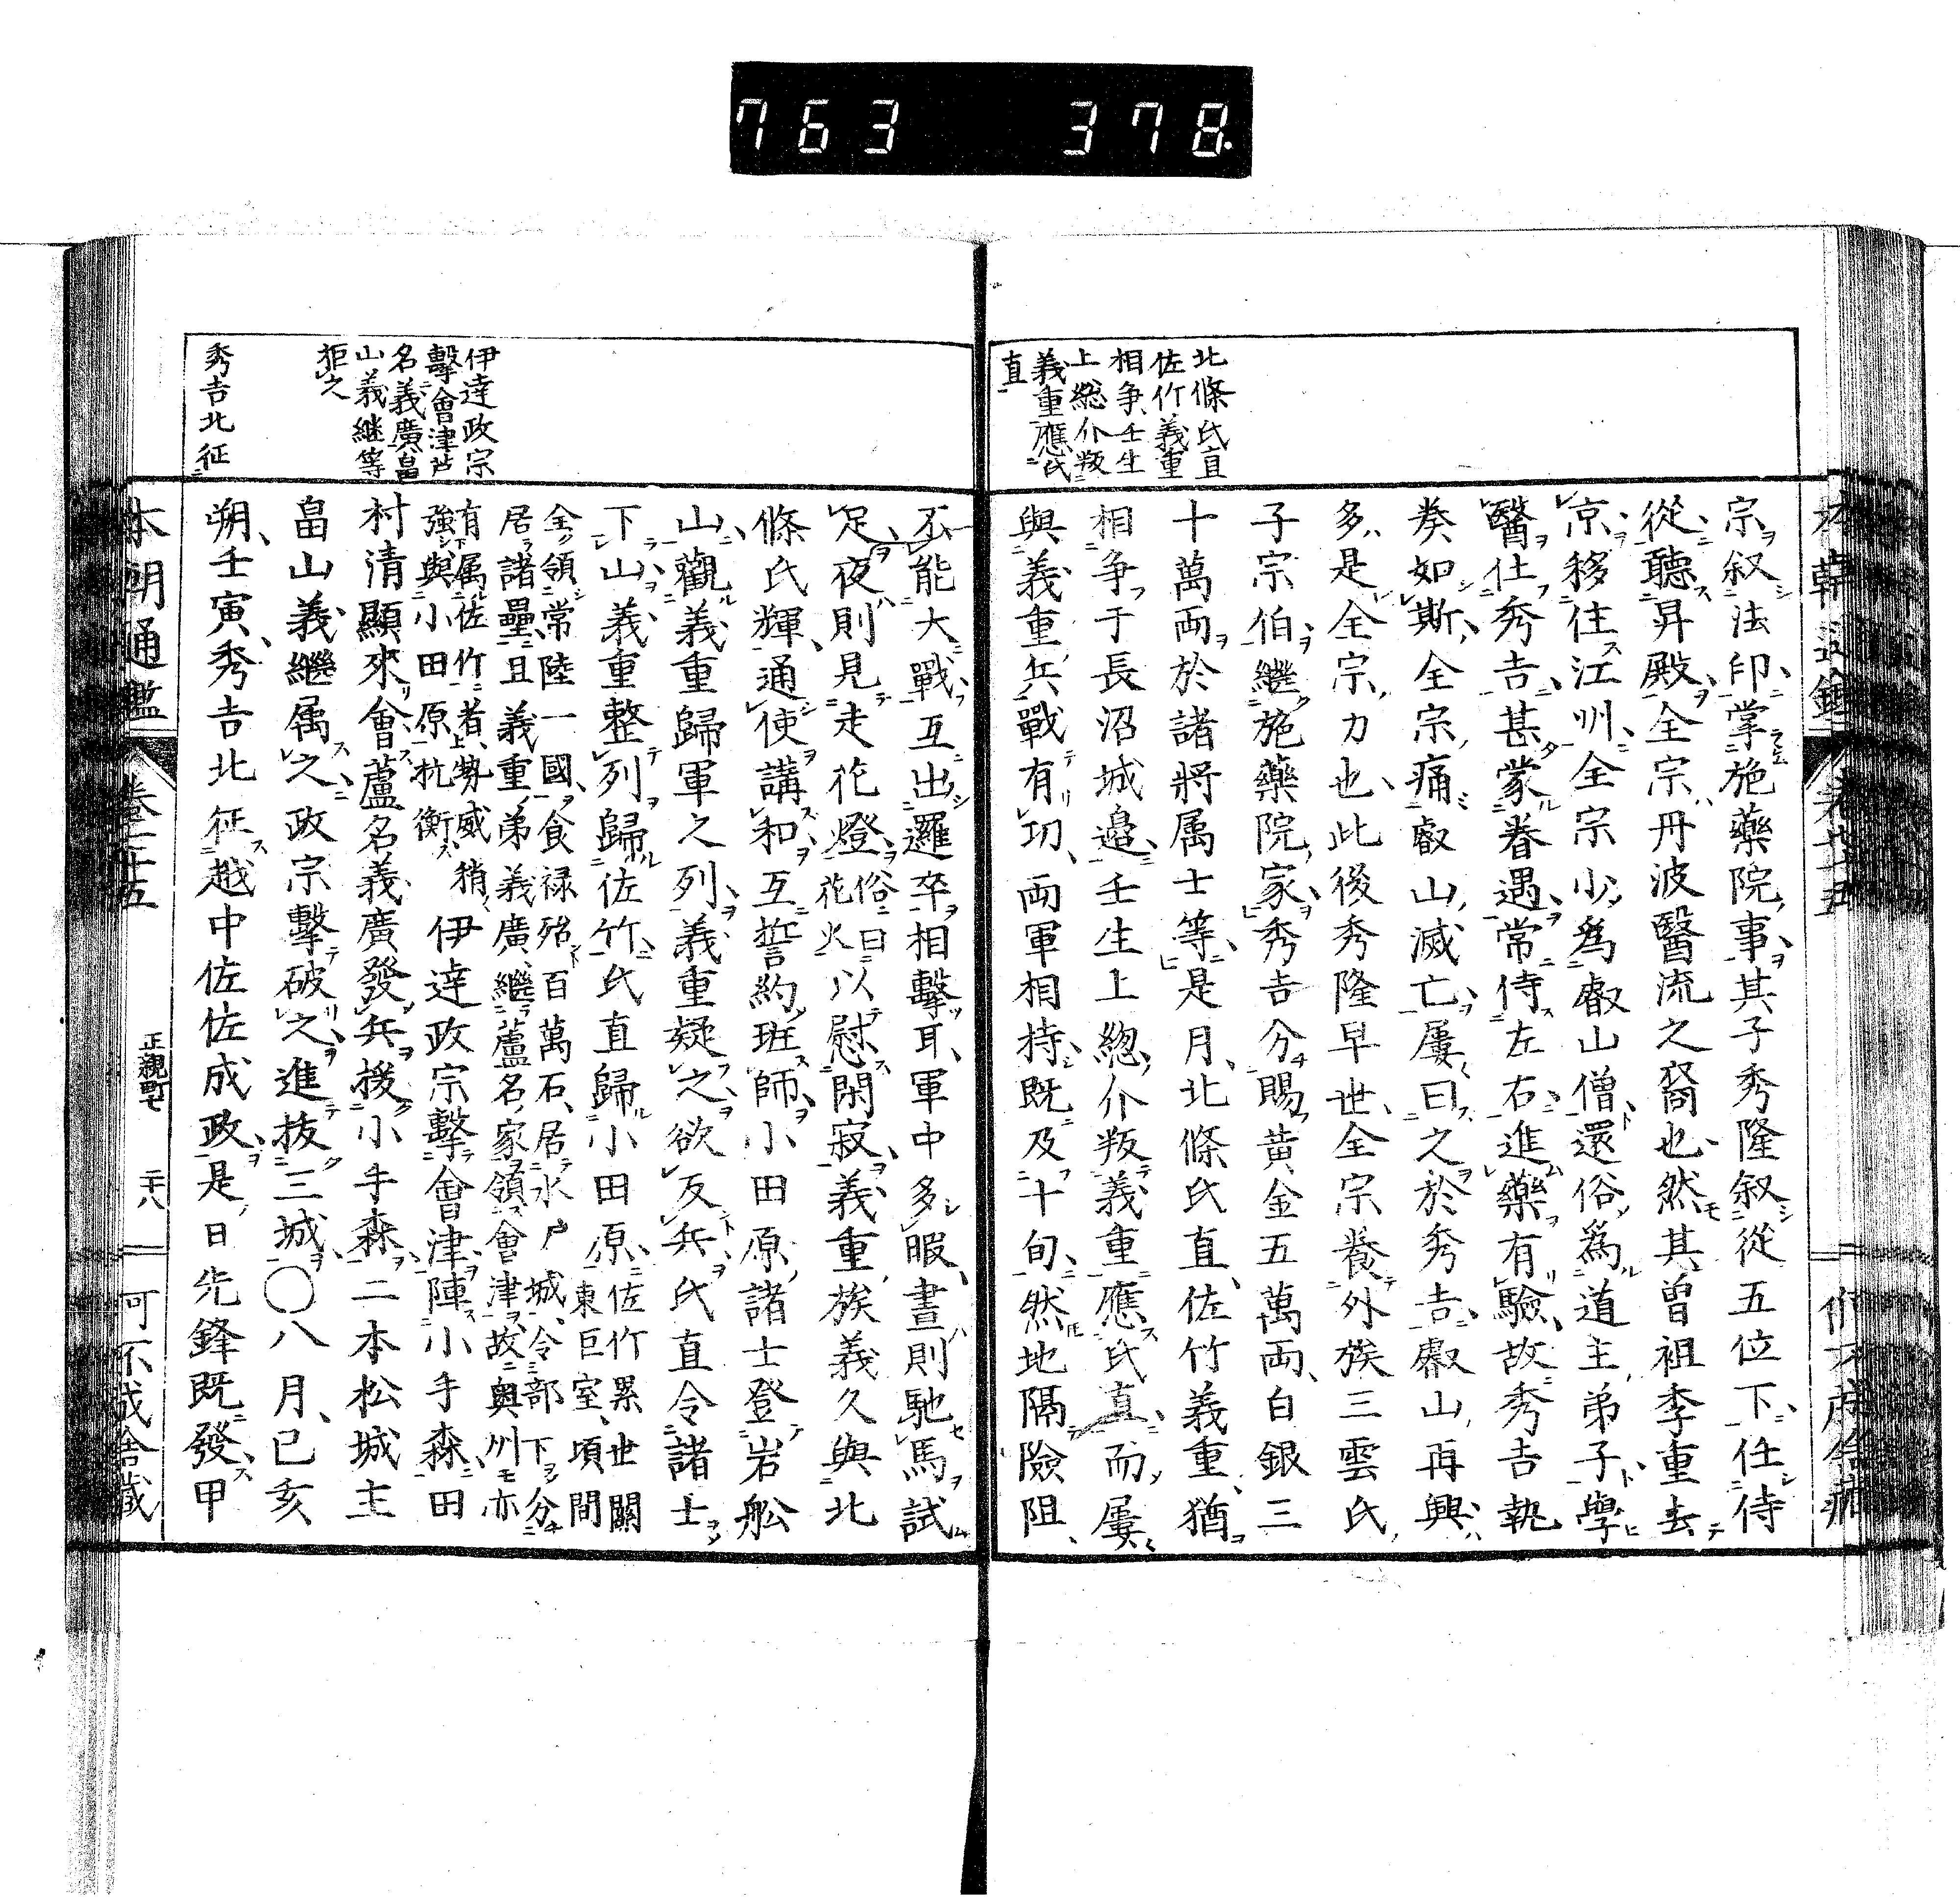 763 378
北條氏直
佐竹義重
相争壬生
上總介叛
義重應氏
直
宗叙法印掌施藥院事其子秀隆叙從五位下任侍
從聽昇殿全宗丹波醫流之裔也然其曾祖李重去
京移住江州全宗少爲叡山僧還俗爲道主弟子學
醫仕秀吉甚蒙眷遇常侍左右進藥有驗故秀吉執
奏如斯全宗痛叡山滅亡屢曰之於秀吉叡山再興
多是全宗力也此後秀隆早世全宗養外族三雲氏
子宗伯繼施藥院家秀吉分賜黄金五萬両白銀三
十萬両於諸將属士等是月北條氏直佐竹義重猶
相争于長沼城邉壬生上總介叛義重應氏直而屢
與義重兵戰有功両軍相持既及十旬然地隔險阻
不能大戰互出邏卒相擊耳軍中多暇晝則馳馬試
足夜則見走花燈俗曰花火以慰閑寂義重族義久與北
條氏輝通使講和互誓約班師小田原諸士登岩舩
山觀義重歸軍之列義重疑之欲反兵氏直令諸士
下山義重整列歸佐竹氏直歸小田原佐竹累世關
東巨室頃間
全領常陸一國食禄殆百萬石居水戸城令部下分
居諸壘且義重弟義廣繼蘆名家領會津故奥州亦
有属佐竹者勢威稍
強與小田原抗衡伊達政宗擊會津陣小手森田
村清顯來會蘆名義廣發兵援小手森二本松城主
畠山義繼属之政宗擊破之進抜三城〇八月己亥
朔壬寅秀吉北征越中佐佐成政是日先鋒既發甲
伊達政宗
擊會津芦
名義廣畠
山義継等
拒之
秀吉北征
本朝通鑑 卷二十五 正親町七 二十八 可不成舎藏